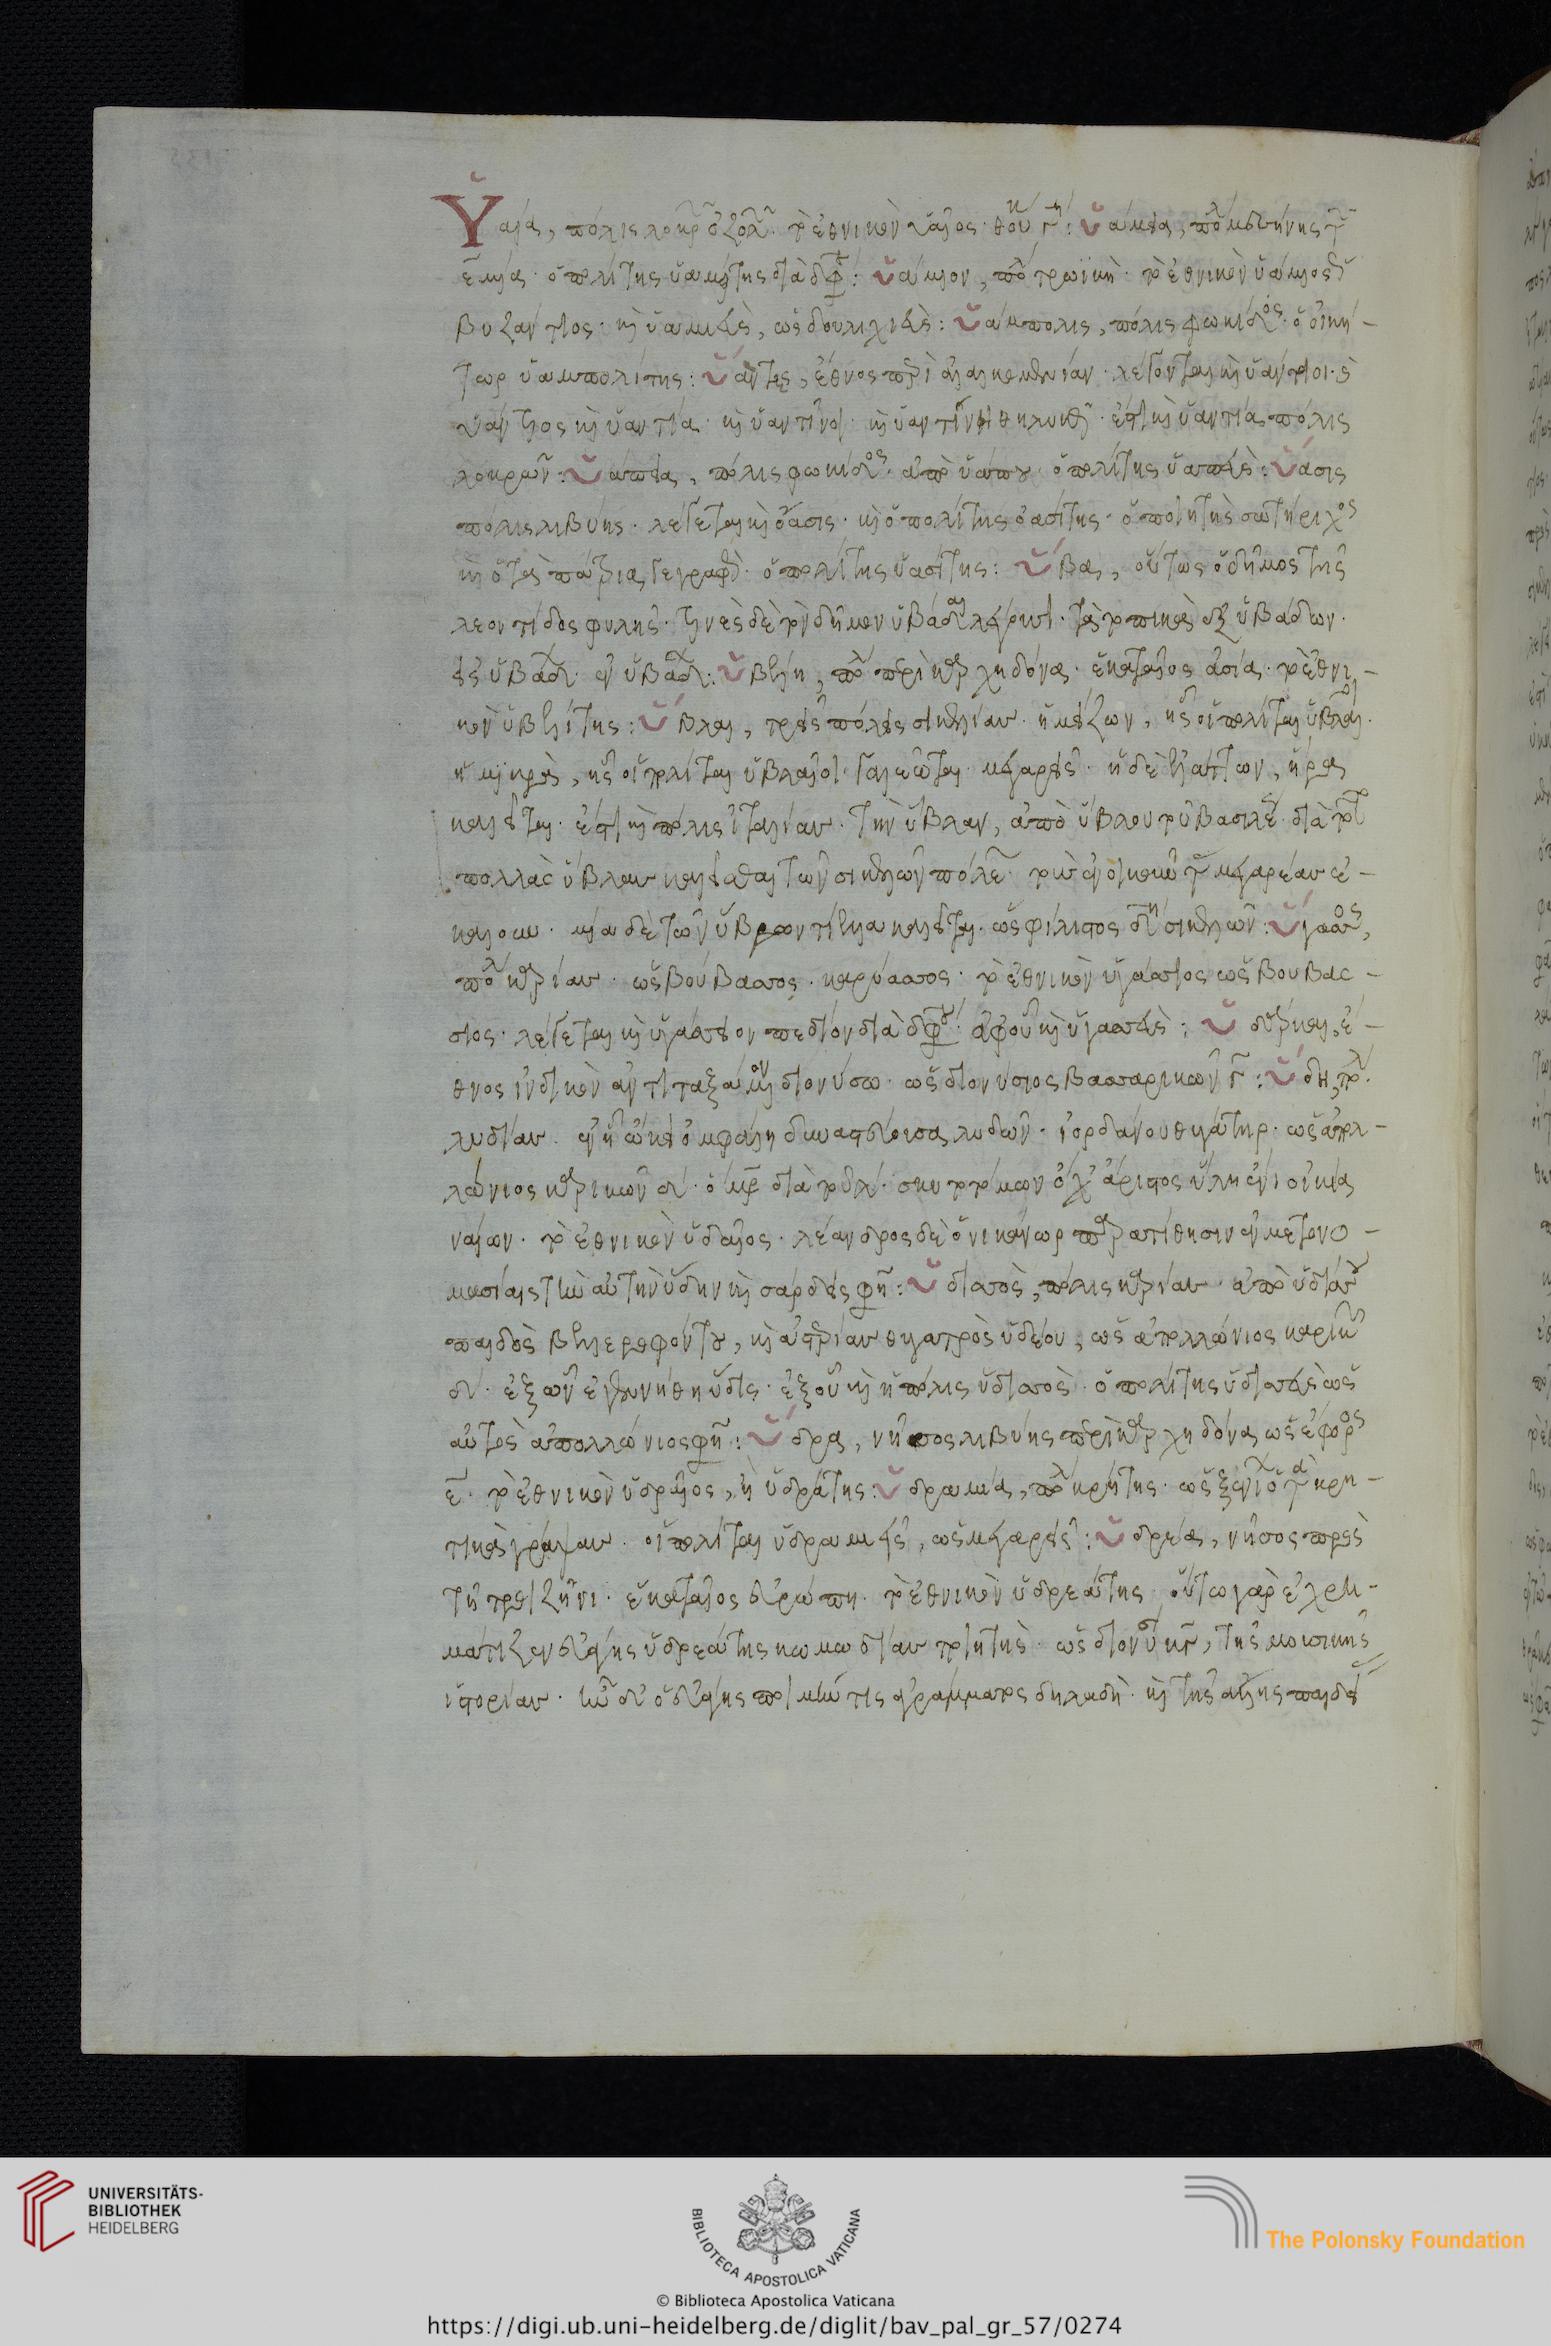 Ὑαία, πόλις λοκρ ὀζολ. τὸ ἐθνικὸν ὑαῖος. θου γ: ὑάμεια, πολ μεσσήνης τ
ε μιᾶς. ὁ πολίτης ὑαμείτης διὰ διφ: ὑάμιον, πο τρωϊκὴ. τὸ ἐθνικὸν ὑάμιος
βυζάντιος. καὶ ὑαμιεὺς, ὡς δουλιχιεὺς: ὑάμπολις, πόλις φωκίδος. ὁ οἰκή-
τωρ ὑαμπολίτης: ὕαντες, ἔθνος περὶ αἰτωλίαν. λέγονται καὶ ὑάντιοι.
ὑάντιος καὶ ὑαντία. καὶ ὑαντῖνοι. καὶ ὑαντίνη θηλυκὴ. ἔστι καὶ ὑαντία πόλις
λοκρῶν: ὑάπεια, πόλις φωκίδος. ἀπὸ ὑάπου. ὁ πολίτης ὑαπεὺς: ὕασις
πόλις λιβύης. λέγεται καὶ ὄασις. καὶ ὁ πολίτης ὀασίτης. ὁ ποιητὴς σωτήριχος
καὶ ὁ τὰ πάτρια γεγραφὼς. ὁ πολίτης ὑασίτης: ὕβας, οὕτως ὁ δῆμος τῆς
λεοντίδος φυλῆς. τινὲς δὲ τὸν δῆμον ὑβάδαι λέγουσι. τὰ τοπικὰ ἐξ ὑβάδων.
εἰς ὑβαδ. ἐν ὑβαδ: ὑβέλη, πολ περὶ καρχηδόνα. ἑκαταῖος ἀσία. τὸ ἐθνι-
κὸν ὑβελίτης: ὕβλαι, τρεῖς πόλεις σικελίας. ἡ μείζων, ἧς οἱ πολῖται ὑβλαῖοι.
ἡ μικρὰ, ἧς οἱ πολῖται ὑβλαῖοι γαλεῶται μεγαρεῖς. ἡ δὲ ἐλάττων, ἡραία
καλεῖται. ἔστι καὶ πόλις ἰταλίας. τὴν ὕβλαν, ἀπὸ ὕβλου τοῦ βασιλέως. διὰ τὸ
πολλὰς ὕβλας καλεῖσθαι τῶν σικελῶν πόλεων τοὺς ἐνοικοῦντας μεγαρέας ἐ-
κάλουν. μία δὲ τῶν ὑβλων τίελλα καλεῖται. ὡς φίλιστος δ σικελῶν: ὕγασσος,
πολ καρίας. ὡς βούβασσος. καρύασσος. τὸ ἐθνικὸν ὑγάσσιος ὡς βουβάσ-
σιος. λέγεται καὶ ὑγάσσειον πεδίον διὰ διφ: ἀφοῦ καὶ ὑγασσεὺς: ὑδάρκαι, ἔ-
θνος ἰνδικὸν ἀντιταξάμενον διονύσω. ὡς διονύσιος βασσαρικῶν γ: ὕδη, πολ
λυδίας. ἐν ἧ ᾤκει ὀμφάλη δυναστεύουσα λυδῶν. ἰορδάνου θυγάτηρ. ὡς ἀπολ-
λώνιος καρικῶν δ. ὅμηρ διὰ τοῦ λ. σκυτοτόμων ὄχ' ἄριστος ὕλη ἔνι οἰκία
ναίων. τὸ ἐθνικὸν ὑδαῖος. λέανδρος δὲ ὁ νικάνωρ παρατίθησιν ἐν μετονο-
μασίαις τὴν αὐτὴν ὕδην καὶ σάρδεις φη: ὑδισσὸς, πόλις καρίας. ἀπὸ ὑδισσοῦ
παιδὸς βελλεροφόντου, καὶ ἀστερίας θυγατρὸς ὑδέου, ὡς ἀπολλώνιος καρικῶν
δ. ἐξ ὧν ἐγεννήθη ὕδις. ἐξ οὗ καὶ ἡ πόλις ὑδισσὸς. ὁ πολίτης ὑδισσεὺς ὡς
αὐτὸς ἀπολλώνιος φη: ὕδρα, νῆσος λιβύης περὶ καρχηδόνα ὡς ἔφορος
ε. τὸ ἐθνικὸν ὑδραῖος, ἢ ὑδράτης: ὑδραμία, πολ κρήτης. ὡς ξενί ὁ τὰ κρη-
τικὰ γράψας. οἱ πολῖται ὑδραμιεῖς, ὡς μεγαρεῖς: ὑδρέα, νῆσος πρὸς
τῆ τροιζῆνι. ἑκαταῖος εὐρώπη. τὸ ἐθνικὸν ὑδρεάτης. οὕτω γὰρ ἐχρη-
μάτιζεν εὐάγης ὑδρεάτης κωμωδίας ποιητὴς. ὡς διονυσι κγ, τῆς μουσικῆς
ἱστορίας. ἦν δ ὁ εὐάγης ποιμὴν τις ἀγράμματος δηλαδὴ. καὶ τῆς ἄλλης παιδεί
UNIVERSITÄTS-
BIBLIOTHEK
HEIDELBERG
BIBLIOTECA APOSTOLICA VATICANA
The Polonsky Foundation
© Biblioteca Apostolica Vaticana
https://digi.ub.uni-heidelberg.de/diglit/bav_pal_gr_57/0274